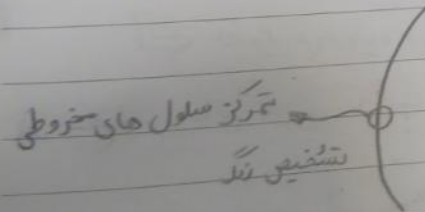 تمرکز سلول های مخروطی
تشخیص رنگ